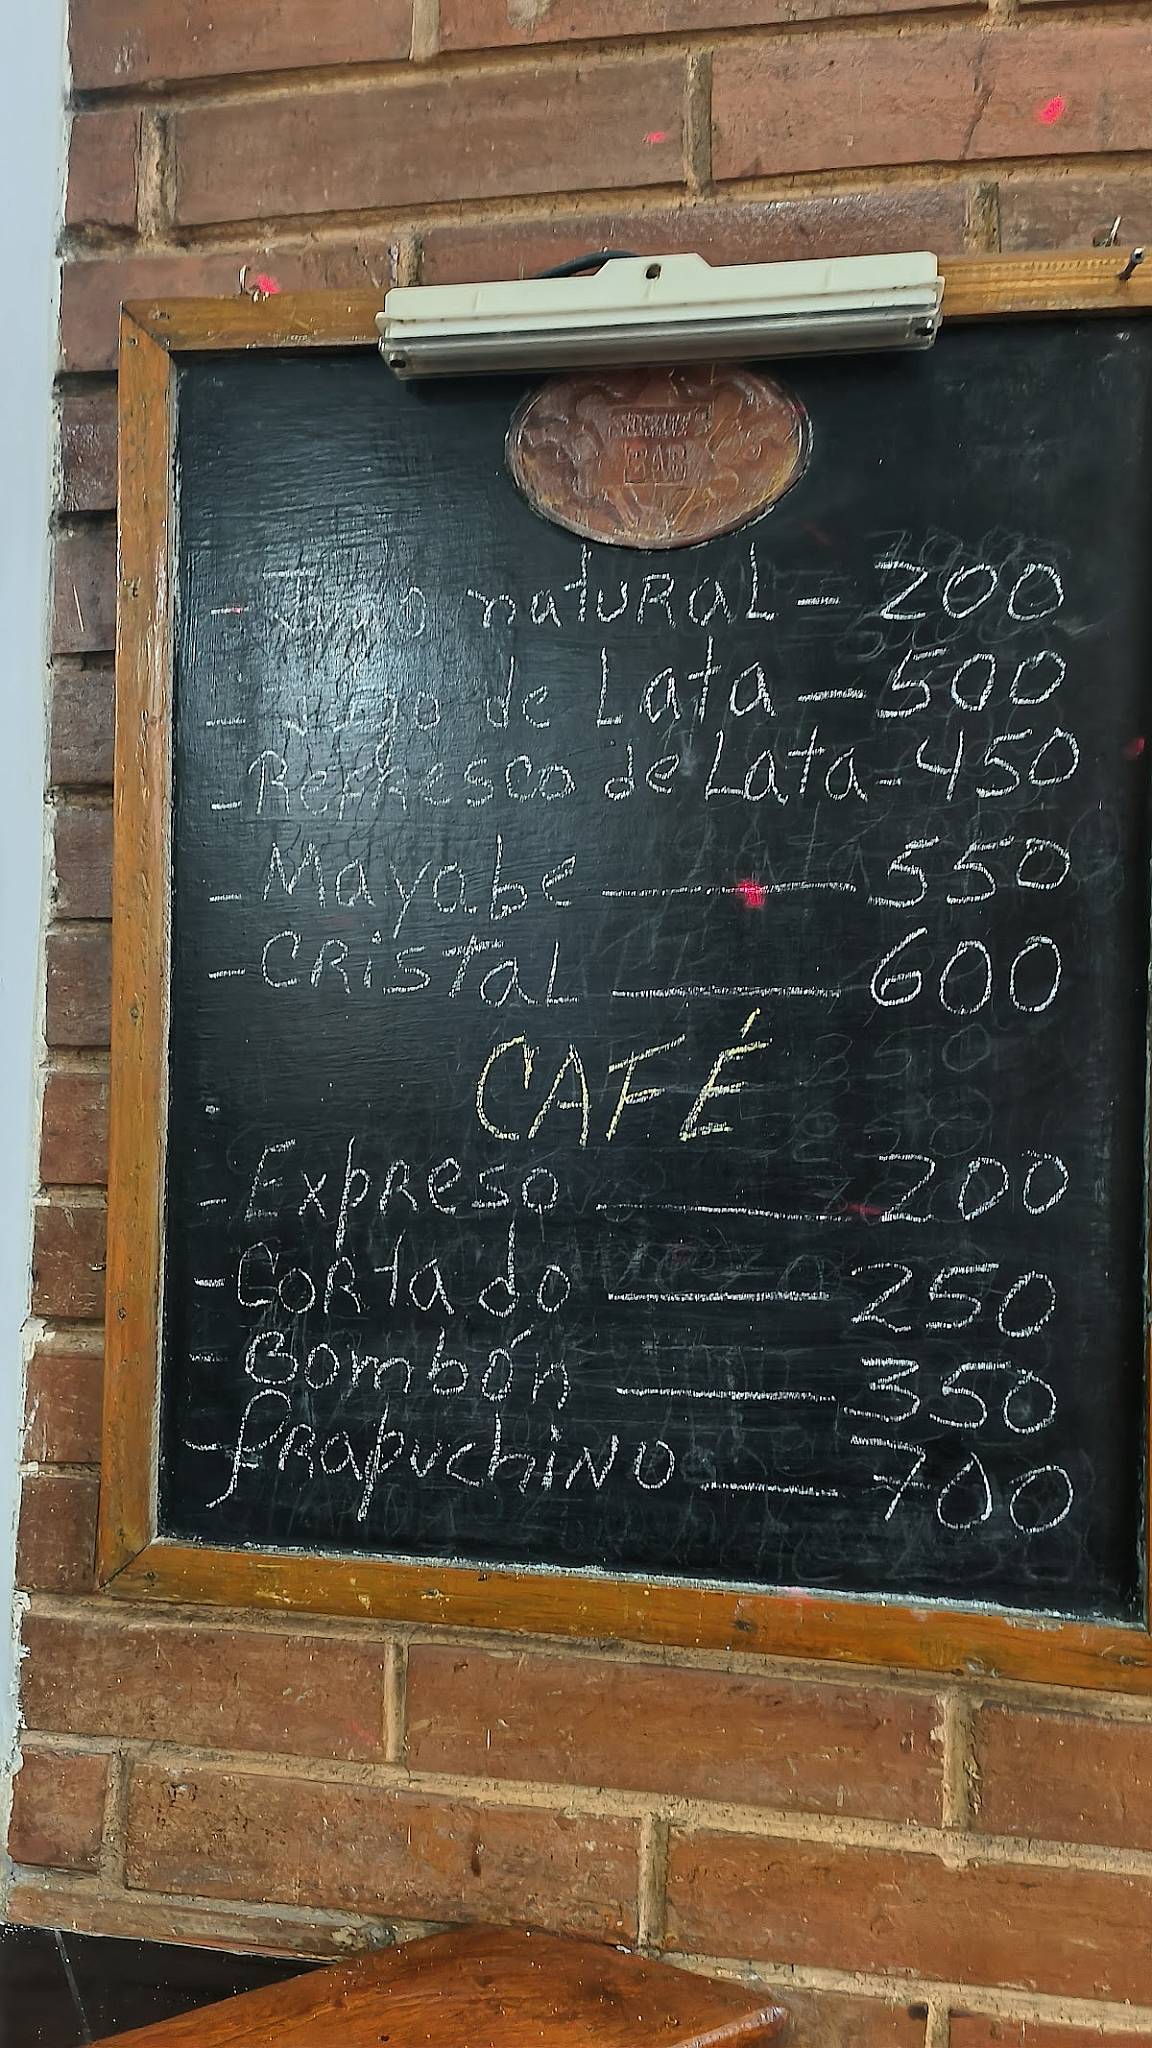 BAR
- Jugo natural - 200
- Jugo de Lata - 500
- Refresco de Lata - 450
- Mayabe - 550
- Cristal - 600
CAFÉ
- Expreso - 200
- Cortado - 250
- Bombón - 350
- frapuchino - 700